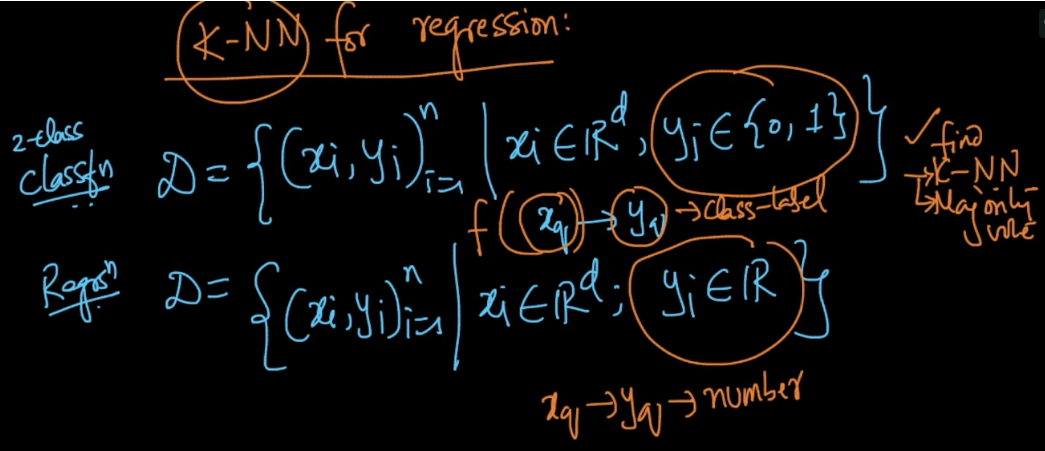 K-NN for regression:
2-class
classfn D = {(xi, yi)ⁿi=1 | xi ∈ ℝᵈ, yi ∈ {0, 1}}
✓ find
→ K-NN
↳ Majority
vote
f(xq) → yq → class-label
Regrsⁿ D = {(xi, yi)ⁿi=1 | xi ∈ ℝᵈ; yi ∈ ℝ}
xq → yq → number